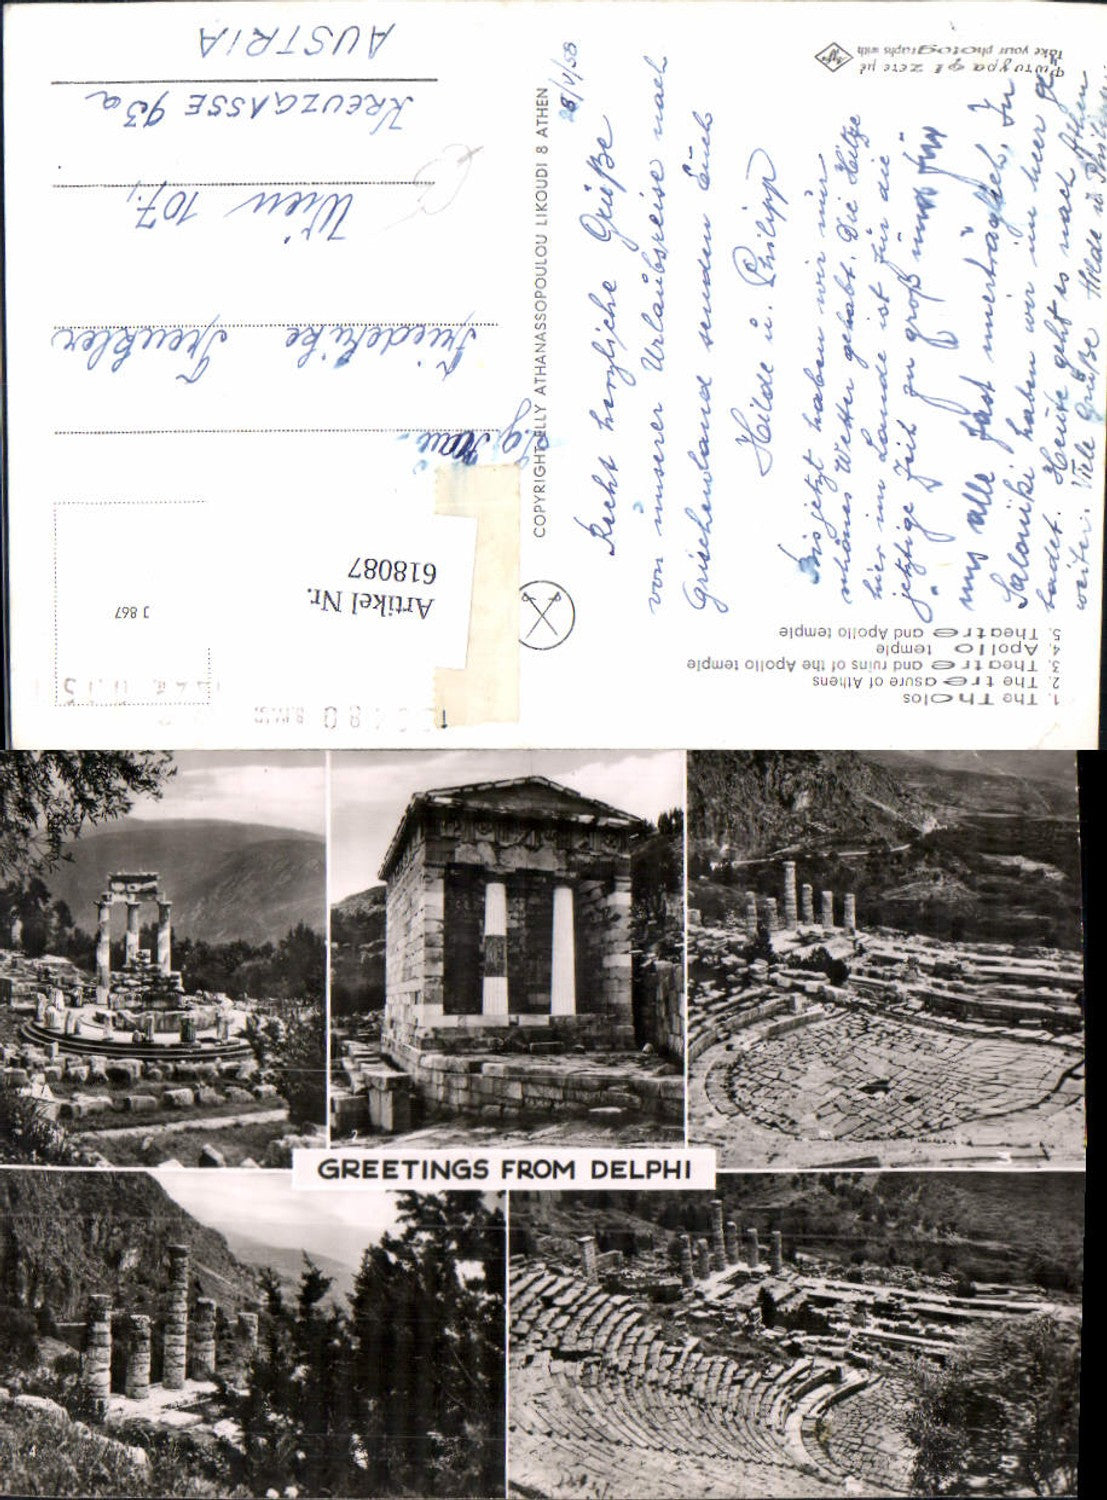 1. The Tholos
2. The treasure of Athens
3. Theatre and ruins of the Apollo temple
4. Apollo temple
5. Theatre and Apollo temple
Recht herzliche Grüße
von unserer Urlaubsreise nach
Griechenland senden Euch
Hilde u. Philipp
Bis jetzt haben wir nur
schönes Wetter gehabt. Die Hitze
hier im Lande ist für die
jetzige Zeit zu groß und für
uns alle fast unerträglich. In
Saloniki haben wir im Meer ge
badet. Heute geht es nach Athen
weiter. Viele Grüße Hilde u.
Take your photographs with
COPYRIGHT ELLY ATHANASSOPOULOU LIKOUDI 8 ATHEN
Artikel Nr.
618087
J 867
Friederike
Wien 107,
KREUZGASSE 93a
AUSTRIA
GREETINGS FROM DELPHI
2